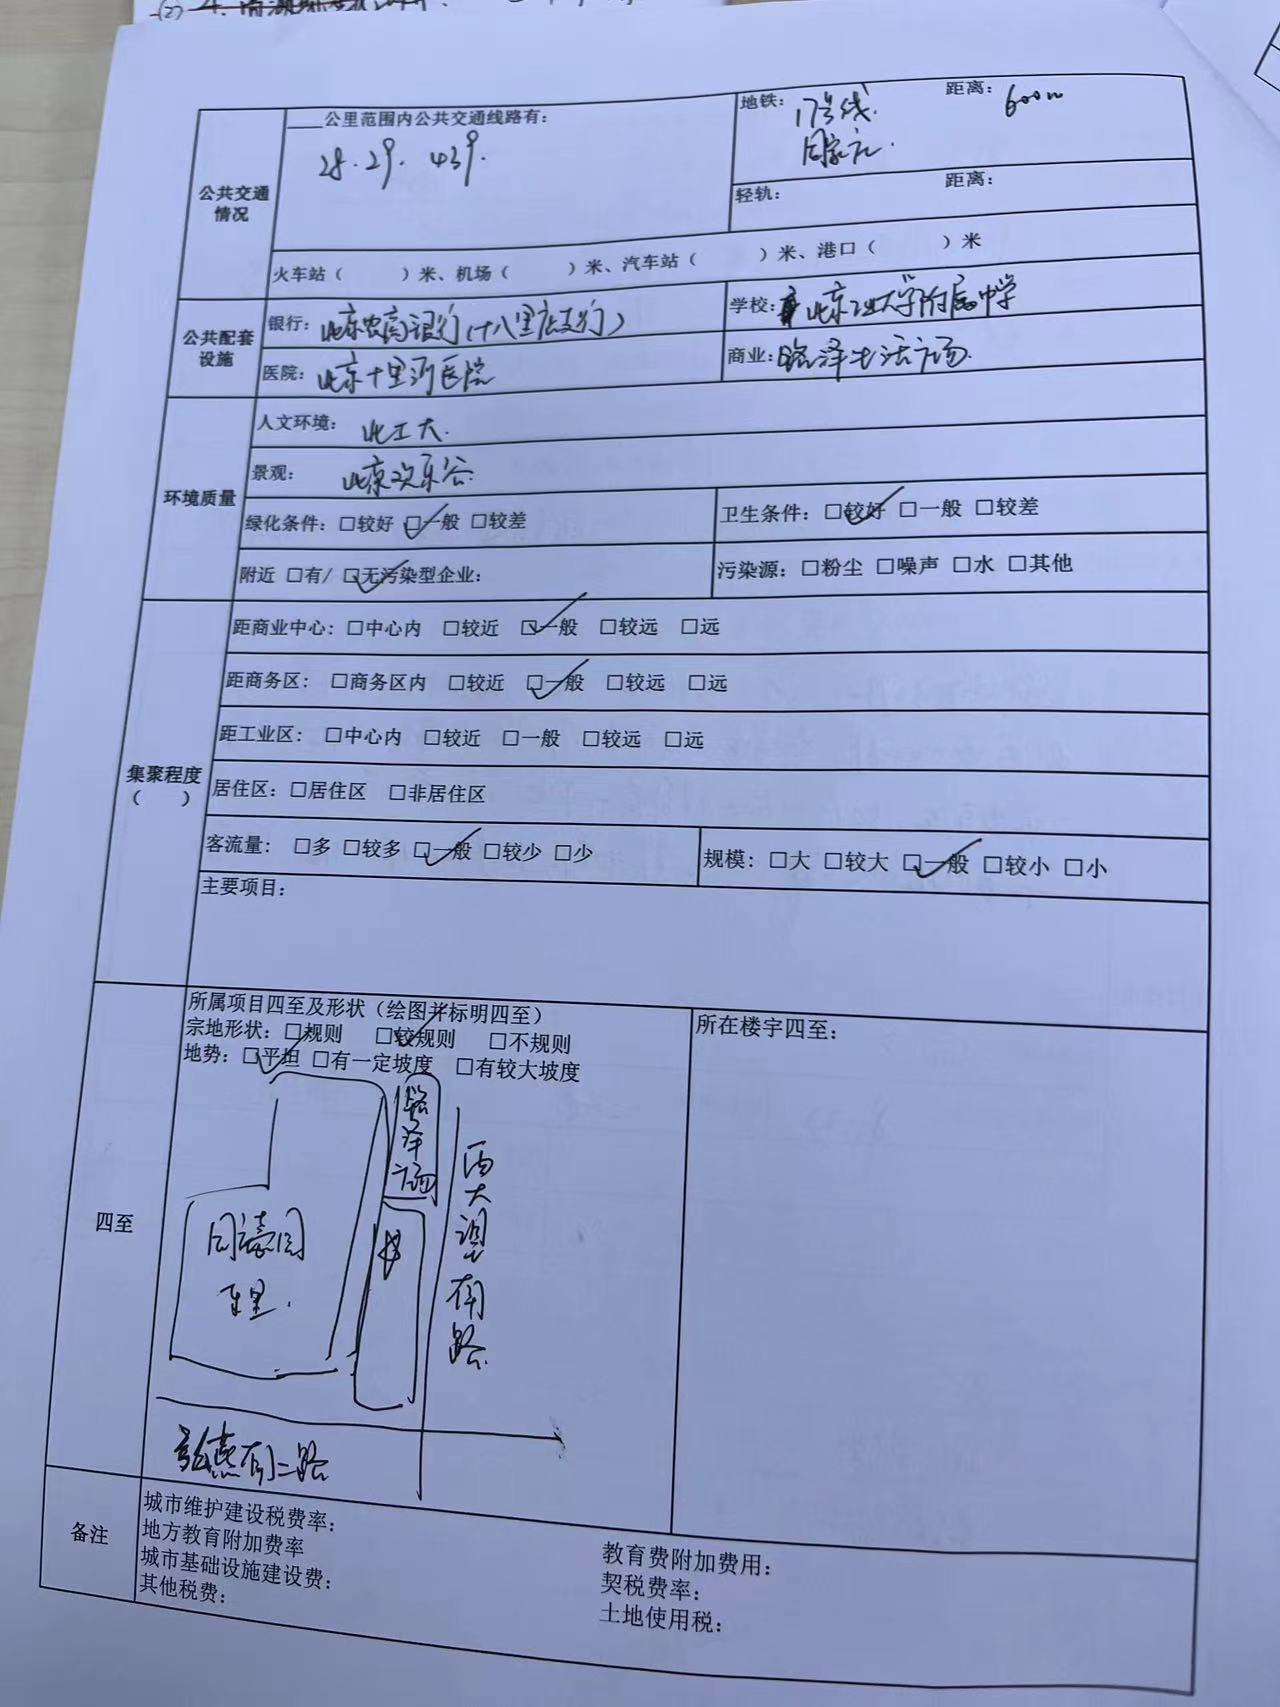 公共交通情况
____公里范围内公共交通线路有:
28. 29. 439.
地铁: 17号线. 距离: 600m
周家庄.
轻轨: 距离:
火车站( )米、机场( )米、汽车站( )米、港口( )米
公共配套设施
银行: 北京农商银行(十八里店支行)
学校: 北京工业大学附属中学
医院: 北京十里河医院
商业: 路泽生活广场.
环境质量
人文环境: 北工大.
景观: 北京欢乐谷
绿化条件: □较好 ☑一般 □较差
卫生条件: ☑较好 □一般 □较差
附近 □有/ ☑无污染型企业:
污染源: □粉尘 □噪声 □水 □其他
集聚程度
( )
距商业中心: □中心内 □较近 ☑一般 □较远 □远
距商务区: □商务区内 □较近 ☑一般 □较远 □远
距工业区: □中心内 □较近 □一般 □较远 □远
居住区: □居住区 □非居住区
客流量: □多 □较多 ☑一般 □较少 □少
规模: □大 □较大 ☑一般 □较小 □小
主要项目:
四至
所属项目四至及形状(绘图并标明四至)
宗地形状: □规则 ☑较规则 □不规则
地势: ☑平坦 □有一定坡度 □有较大坡度
所在楼宇四至:
路泽广场
西大望南路
东里.
南二路
备注
城市维护建设税费率:
地方教育附加费率
城市基础设施建设费:
其他税费:
教育费附加费用:
契税费率:
土地使用税: